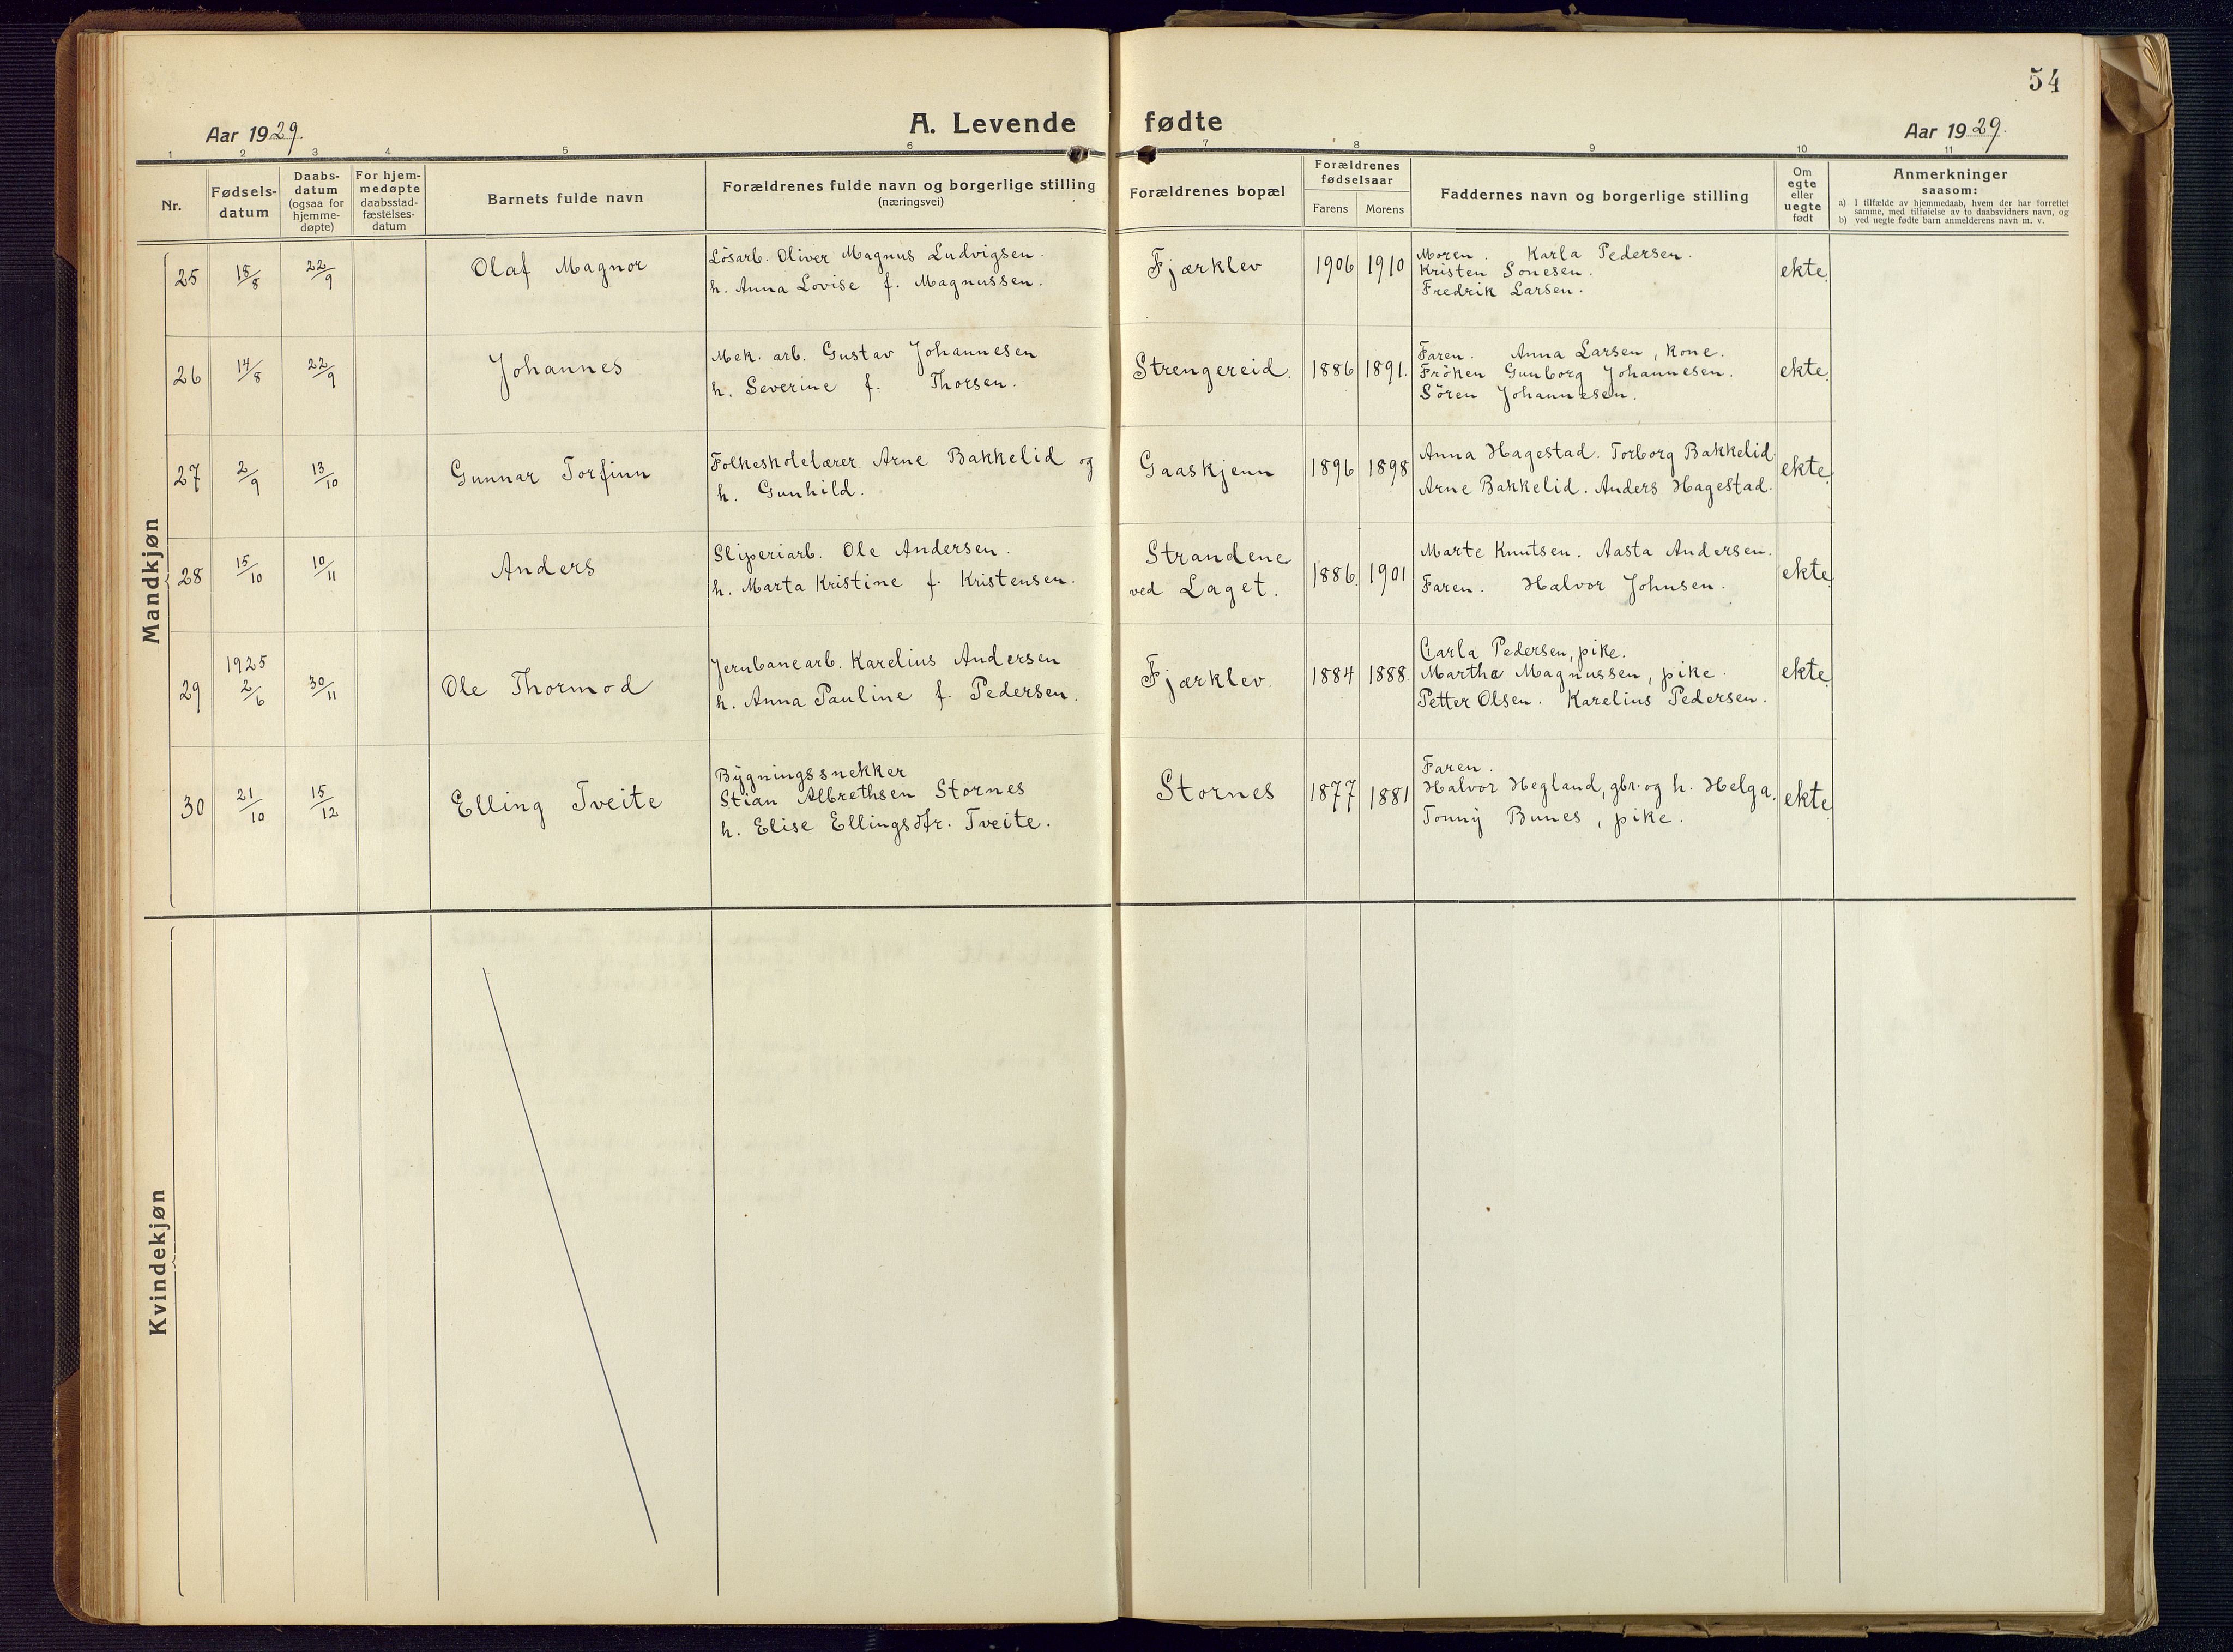 54
Aar 1929.
A. Levende fødte
Aar 1929.
1 2 3 4 5 6 7 8 9 10 11
Nr.
Fødsels-
datum
Daabs-
datum
(ogsaa for
hjemme-
døpte)
For hjem-
medøpte
daabsstad-
fæstelses-
datum
Barnets fulde navn
Forældrenes fulde navn og borgerlige stilling
(næringsvei)
Forældrenes bopæl
Forældrenes
fødselsaar
Farens Morens
Faddernes navn og borgerlige stilling
Om
egte
eller
uegte
født
Anmerkninger
saasom:
a) I tilfælde av hjemmedaab, hvem der har forrettet
samme, med tilføielse av to daabsvidners navn, og
b) ved uegte fødte barn anmelderens navn m. v.
Mandkjøn
25 15/8 22/9 Olaf Magnor
Lösarb. Oliver Magnus Ludvigsen.
h. Anna Lovise f. Magnussen.
Fjærklev 1906 1910
Moren. Karla Pedersen.
Kristen Sonesen.
Fredrik Larsen.
ekte.
26 14/8 22/9 Johannes
Mek. arb. Gustav Johannesen
h. Severine f. Thorsen.
Strengereid. 1886 1891.
Faren. Anna Larsen, kone.
Fröken Gunborg Johannesen.
Sören Johannesen.
ekte.
27 2/9 13/10 Gunnar Torfinn
Folkeskolelærer Arne Bakkelid og
h. Gunhild.
Gaaskjenn 1896 1898
Anna Hagestad. Torborg Bakkelid.
Arne Bakkelid. Anders Hagestad.
ekte.
28 15/10 10/11 Anders
Sliperiarb. Ole Andersen.
h. Marta Kristine f. Kristensen.
Strandene
ved Laget.
1886. 1901
Marte Knutsen. Aasta Andersen.
Faren. Halvor Johnsen.
ekte.
29 1925
2/6 30/11 Ole Thormod
Jernbanearb. Karelius Andersen
h. Anna Pauline f. Pedersen.
Fjærklev. 1884 1888.
Carla Pedersen, pike.
Martha Magnussen, pike.
Petter Olsen. Karelius Pedersen.
ekte.
30 21/10 15/12 Elling Tveite
Bygningssnekker
Stian Albrethsen Stornes
h. Elise Ellingsdtr. Tveite.
Stornes 1877 1881
Faren.
Halvor Hegland, gbr. og h. Helga.
Tonny Bunes, pike.
ekte.
Kvindekjøn